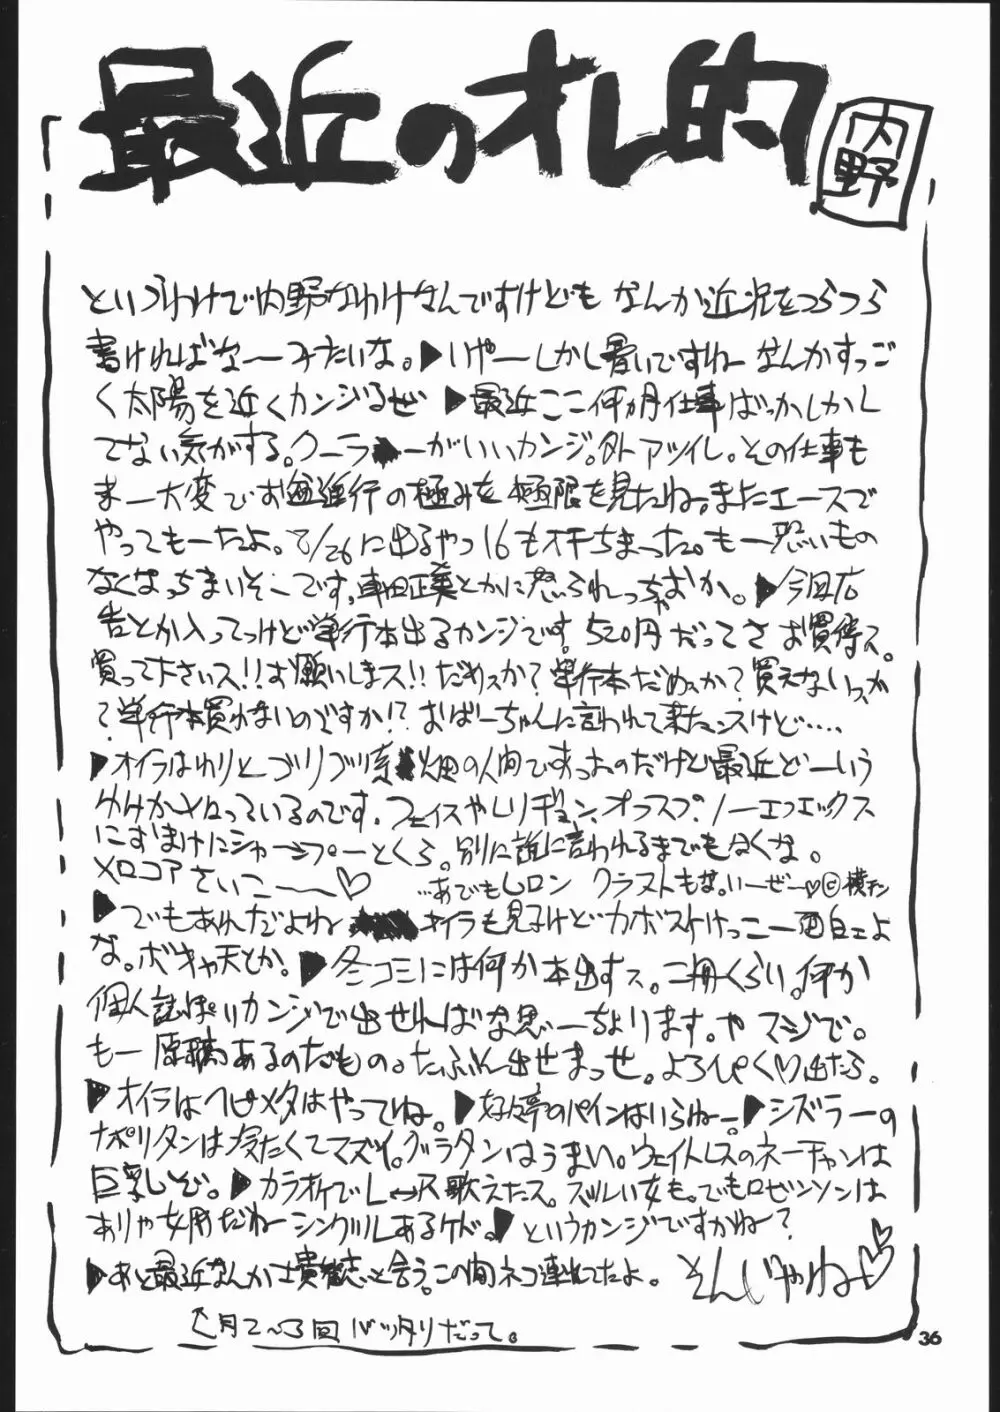 最近のオレ的
内野
というわけで内野なわけなんですけどもなんか近況をつらつら
書ければなーみたいな。▶いやーしかし暑いですねーなんかすっご
く太陽を近くカンジるぜ ▶最近ここ何ヵ月仕事ばっかしかし
てない気がする。クーラーがいいカンジ。外アツイし。その仕事も
まー大変でお進行の極みを極限を見たね。またエースで
やってもーたよ。8/26に出るやつ16もオチちまった。もー恐いもの
なくなっちまいそーです。車田正美とかに怒られっちゃおか。▶今回広
告とか入ってっけど単行本出るカンジです。520円だってさお買得ス。
買って下さいス!!お願いしまス!!だめスか?単行本だめスか?買えないっスか
?単行本買わないのですか!?おばーちゃんに言われて来たンスけど‥‥
▶オイラはわりとゴリゴリ系畑の人間ですったのだけど最近どーいう
わけかメロっているのです。フェイスやレリギョン、オフスプ、ノーエフエックス
におまけにシャーシプーとくら。別に誰に言われるまでもなくな。
メロコアさいこ〜〜♡ …あでもLロン クラストもな。いーぜー♡©横チン
▶でもあれだよねオイラも見るけどカボスけっこー面白エよ
な。ボキャ天とか。▶冬コミには何か本出すス。二冊くらい。何か
個人誌ぽいカンジで出せればな思ーちょります。や マジで。
もー原稿あるのだもの。たぶん出せまっせ。よろぴく♡出たら。
▶オイラはヘビメタはやってね。▶好々亭のパインはいらねー。▶シズラーの
ナポリタンは冷たくてマズイ。グラタンはうまい。ウェイトレスのネーチャンは
巨乳しぞ。▶カラオケでL↔R歌えたス。ズルい女も。でもロビンソンは
ありゃ女用だねーシングルしあるケド。▶というカンジですかね〜?
▶あと最近なんか士貴智志と会う。この間ネコ連れてたよ。 そんじゃね♡
↑月2〜3回バッタリだって。
36